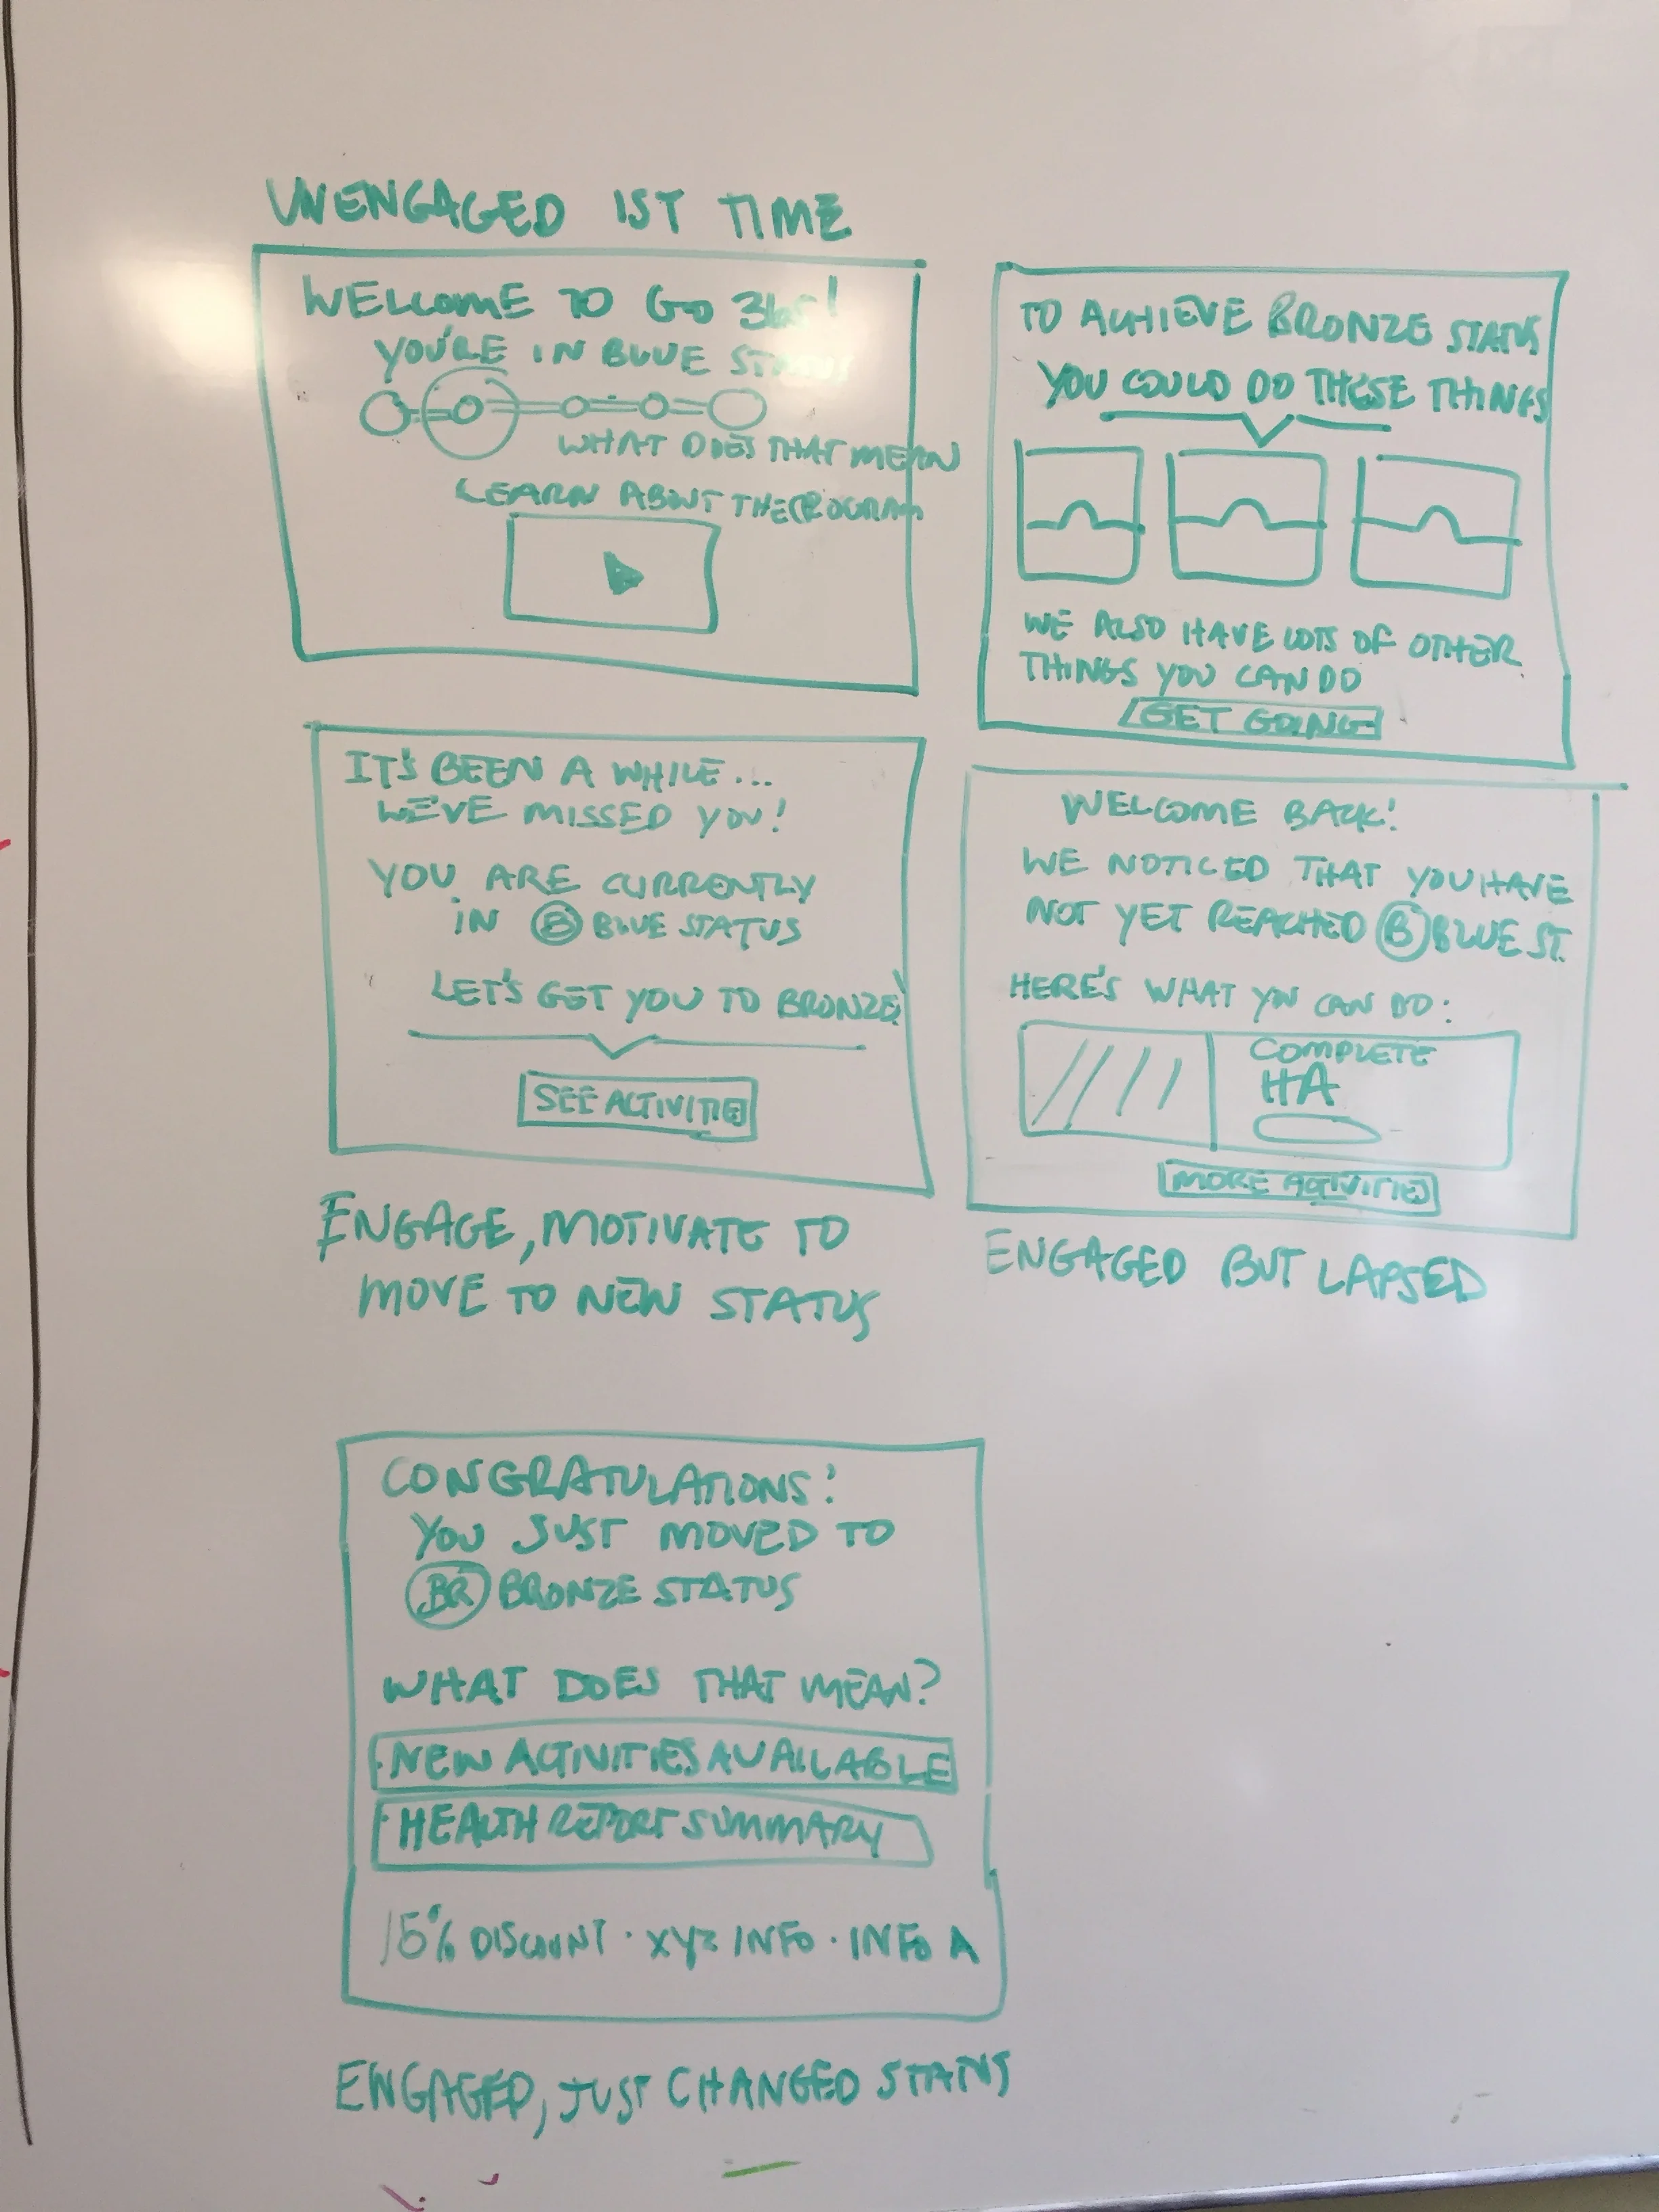 UNENGAGED 1ST TIME
WELCOME TO GO 365!
YOU'RE IN BLUE STATUS
WHAT DOES THAT MEAN
LEARN ABOUT THE PROGRAM
TO ACHIEVE BRONZE STATUS
YOU COULD DO THESE THINGS
WE ALSO HAVE LOTS OF OTHER
THINGS YOU CAN DO
GET GOING
IT'S BEEN A WHILE...
WE'VE MISSED YOU!
YOU ARE CURRENTLY
IN B BLUE STATUS
LET'S GET YOU TO BRONZE!
SEE ACTIVITIES
ENGAGE, MOTIVATE TO
MOVE TO NEW STATUS
WELCOME BACK!
WE NOTICED THAT YOU HAVE
NOT YET REACHED B BLUE ST.
HERE'S WHAT YOU CAN DO:
COMPLETE
HA
MORE ACTIVITIES
ENGAGED BUT LAPSED
CONGRATULATIONS!
YOU JUST MOVED TO
BR BRONZE STATUS
WHAT DOES THAT MEAN?
· NEW ACTIVITIES AVAILABLE
· HEALTH REPORT SUMMARY
15% DISCOUNT · XYZ INFO · INFO A
ENGAGED, JUST CHANGED STATUS